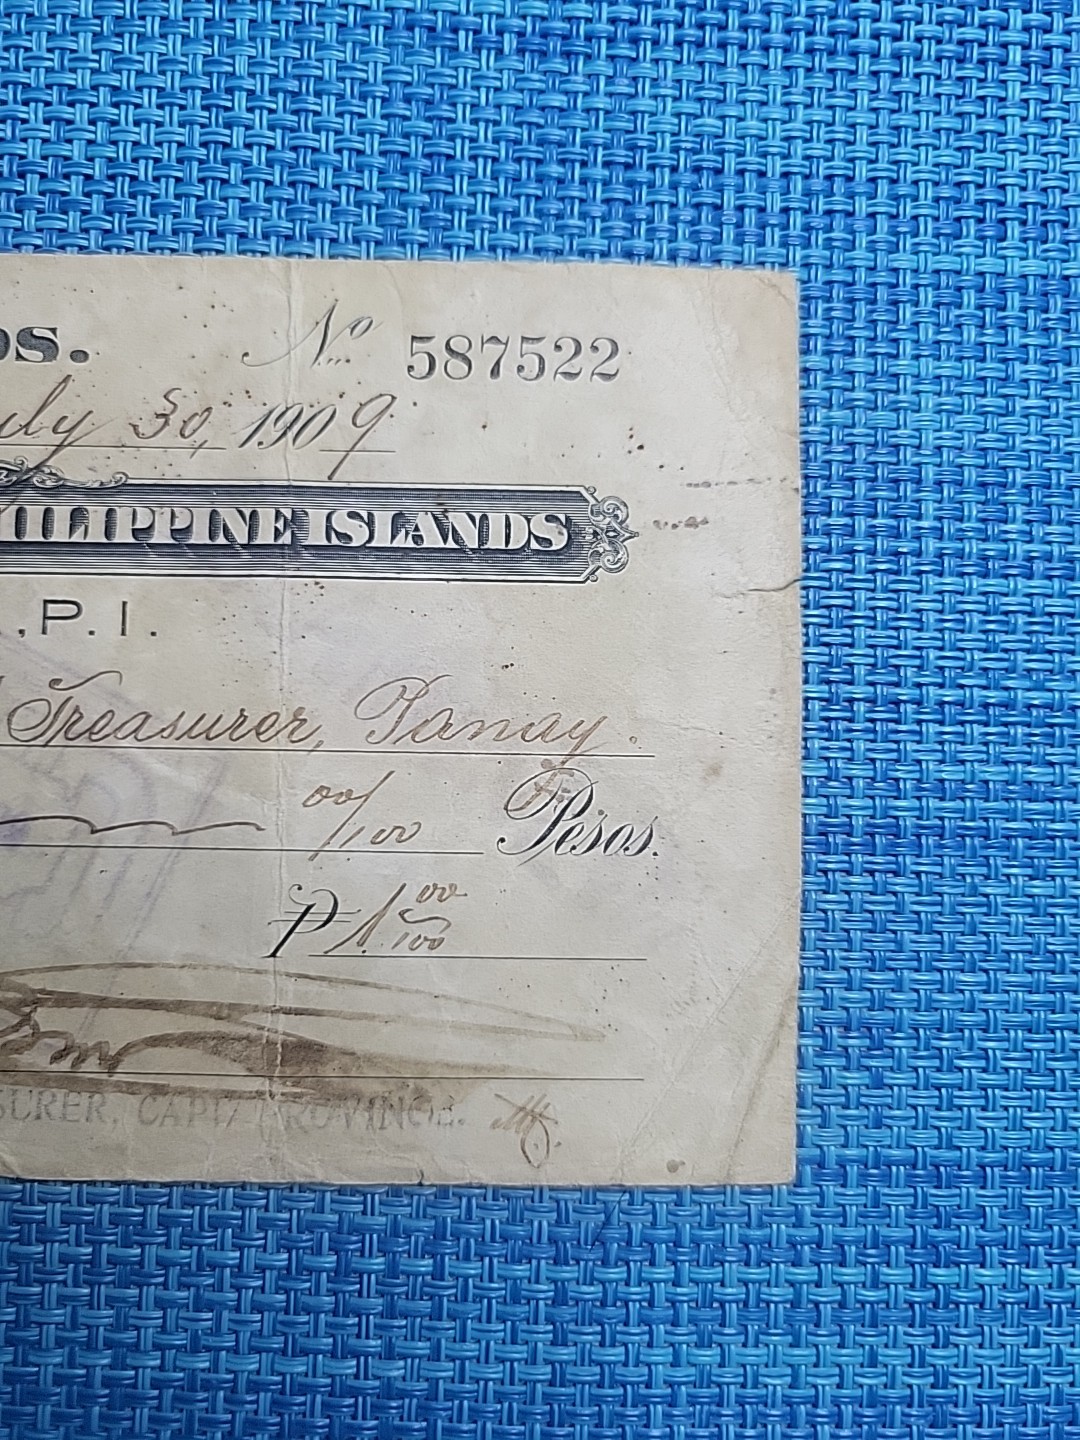 os. No. 587522
ly 30, 1909
HILIPPINE ISLANDS
., P. I.
Treasurer, Panay.
00/100 Pesos.
₱ 1. 00/100
SURER, CAPIZ PROVINCE.